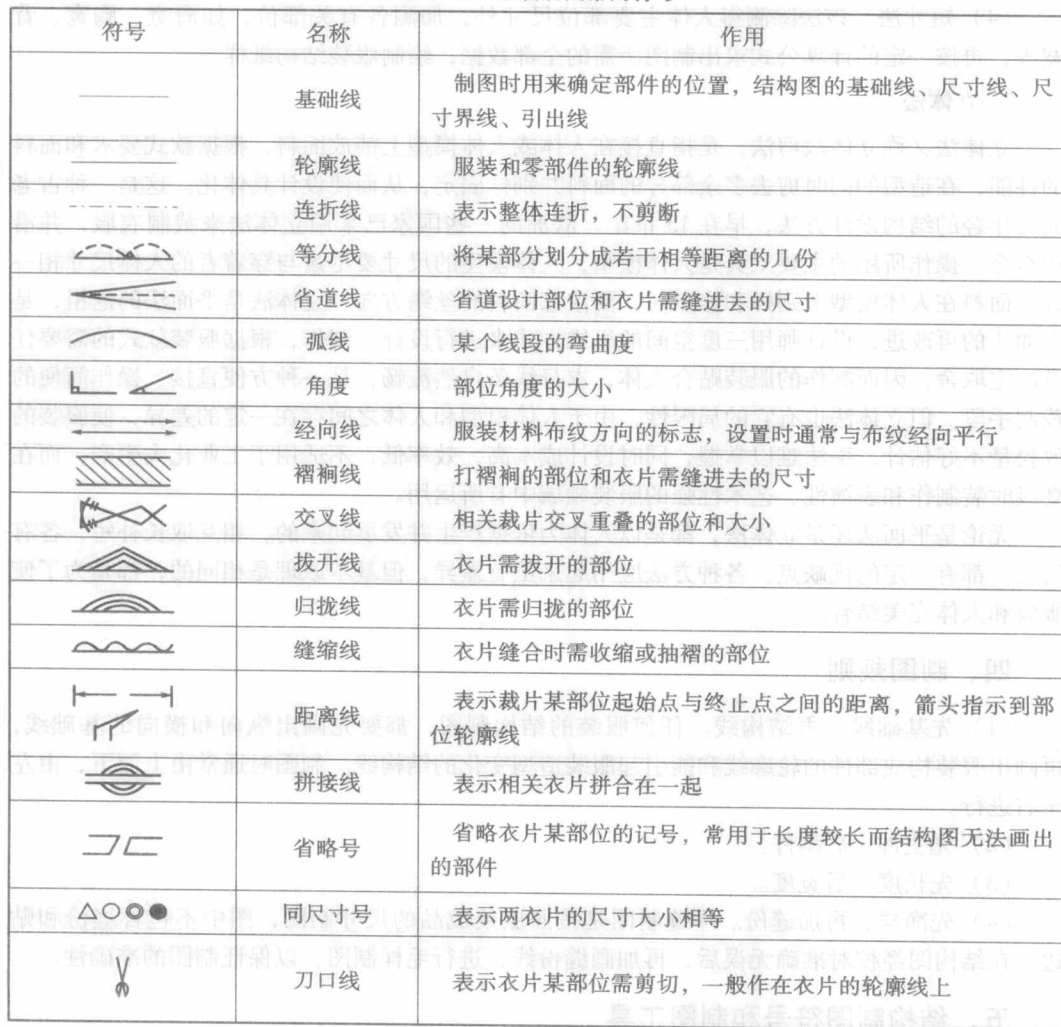 符号 名称 作用
基础线 制图时用来确定部件的位置，结构图的基础线、尺寸线、尺
寸界线、引出线
轮廓线 服装和零部件的轮廓线
连折线 表示整体连折，不剪断
等分线 将某部分划分成若干相等距离的小份
省道线 省道设计部位和衣片需缝进去的尺寸
弧线 某个线段的弯曲度
角度 部位角度的大小
经向线 服装材料布纹方向的标志，设置时通常与布纹经向平行
褶裥线 打褶裥的部位和衣片需缝进去的尺寸
交叉线 相关裁片交叉重叠的部位和大小
拔开线 衣片需拔开的部位
归拢线 衣片需归拢的部位
缝缩线 衣片缝合时需收缩或抽褶的部位
距离线 表示裁片某部位起始点与终止点之间的距离，箭头指示到部
位轮廓线
拼接线 表示相关衣片拼合在一起
省略号 省略衣片某部位的记号，常用于长度较长而结构图无法画出
的部件
同尺寸号 表示两衣片的尺寸大小相等
刀口线 表示衣片某部位需剪切，一般作在衣片的轮廓线上